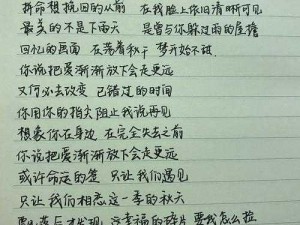 拼命想挽回的从前 在我脸上依旧清晰可见
最美的不是下雨天 是曾与你躲过雨的屋檐
回忆的画面 在荡着秋千 梦开始不甜
你说把爱渐渐放下会走更远
又何必去改变 已错过的时间
你用你的指尖 阻止我说再见
想象你在身边 在完全失去之前
你说把爱渐渐放下会走更远
或许命运的签 只让我们遇见
只让我们相恋这一季的秋天
后才发现 这幸福的碎片 要我怎么捡